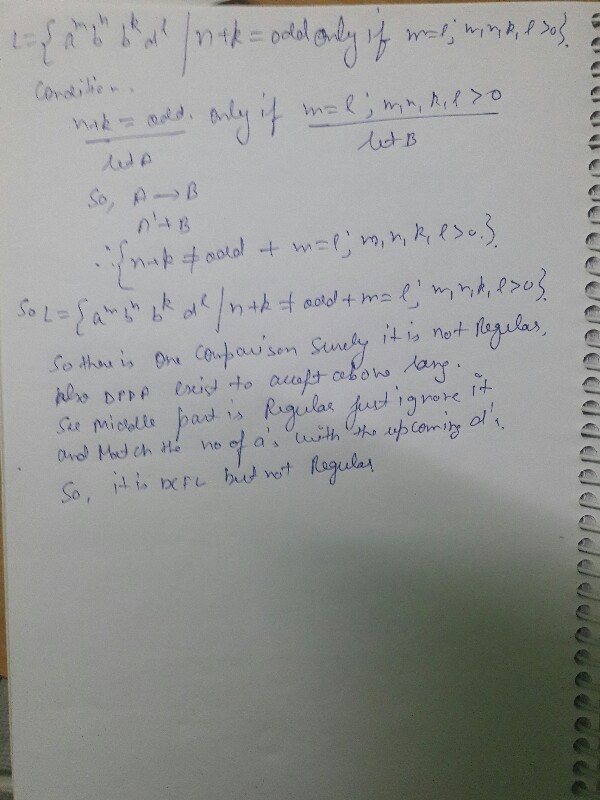 L={ a^m b^n b^k d^l / n+k = odd only if m=l; m,n,k,l >0}.
Condition.
n+k = odd. only if m=l ; m,n,k,l >0
let A let B
So, A → B
A' + B
∴ {n+k ≠ odd + m=l; m,n,k,l >0.}
So L= { a^m b^n b^k d^l / n+k ≠ odd + m=l; m,n,k,l >0}.
So there is one comparison surely it is not Regular,
Also DPDA exist to accept above lang.
See middle part is Regular just ignore it
and Match the no of a's with the upcoming d's.
So, it is DCFL but not Regular